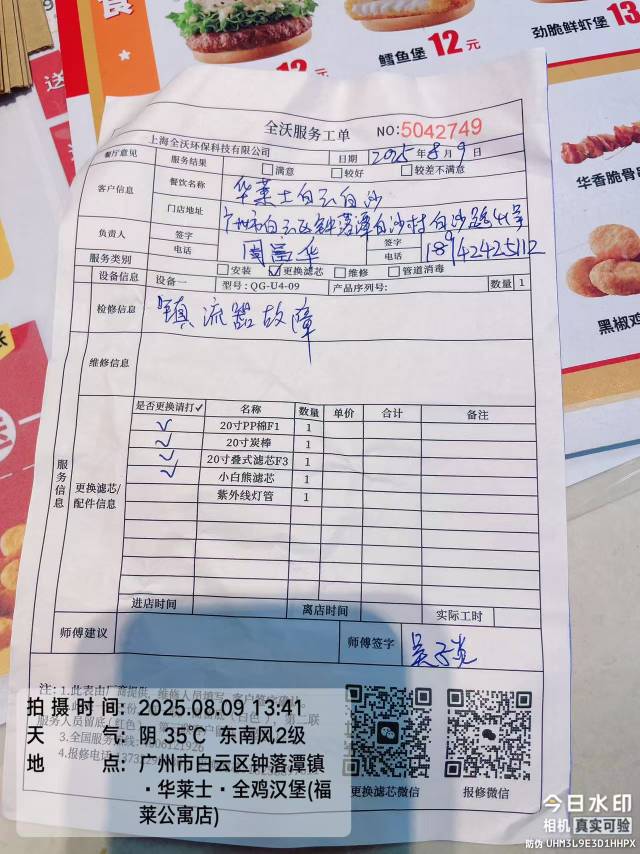 食
鳕鱼堡 12元
劲脆鲜虾堡
13
华香脆骨
黑椒鸡
全沃服务工单 NO:5042749
上海全沃环保科技有限公司 日期 2025年8月9日
餐厅意见 服务结果 满意 较好 较差不满意
客户信息 餐饮名称 华莱士白云白沙
门店地址 广州市白云区钟落潭白沙村白沙路
负责人 签字 签字
电话 电话 18942425112
服务类别 安装 ✓更换滤芯 维修 管道消毒
设备信息 设备一 型号: QG-U4-09 产品序列号: 数量 1
检修信息 镇流器故障
维修信息
服务信息
更换滤芯/配件信息
是否更换请打✓ 名称 数量 单价 合计 备注
✓ 20寸PP棉F1 1
✓ 20寸炭棒 1
✓ 20寸叠式滤芯F3 1
✓ 小白熊滤芯 1
紫外线灯管 1
进店时间 离店时间 实际工时
师傅建议 师傅签字
注: 1.此表由厂商提供, 维修人员填写, 客户签字确认
服务人员留底(红色) 第二联
更换滤芯微信 报修微信
拍摄时间: 2025.08.09 13:41
天气: 阴 35℃ 东南风2级
地点: 广州市白云区钟落潭镇
·华莱士·全鸡汉堡(福
莱公寓店)
今日水印
相机 真实可验
防伪 UHM3L9E3D1HHPX